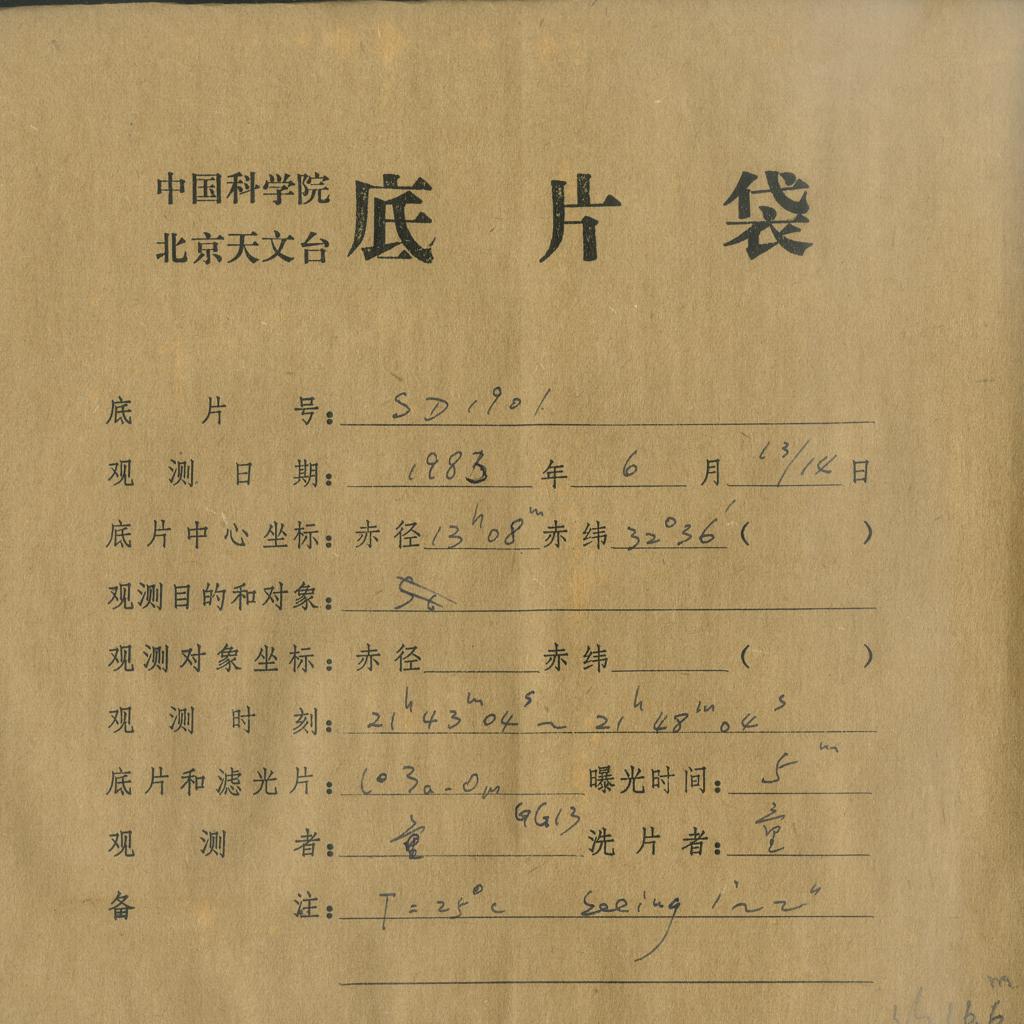 中国科学院
北京天文台 底片袋
底片号: SD1901
观测日期: 1983年6月13/14日
底片中心坐标: 赤径13h08m赤纬32°36′( )
观测目的和对象:
观测对象坐标: 赤径 赤纬 ( )
观测时刻: 21h43m04s~21h48m04s
底片和滤光片: 103a-O 曝光时间: 5m
GG13
观测者: 童 洗片者: 童
备注: T=25°C Seeing 1~2"